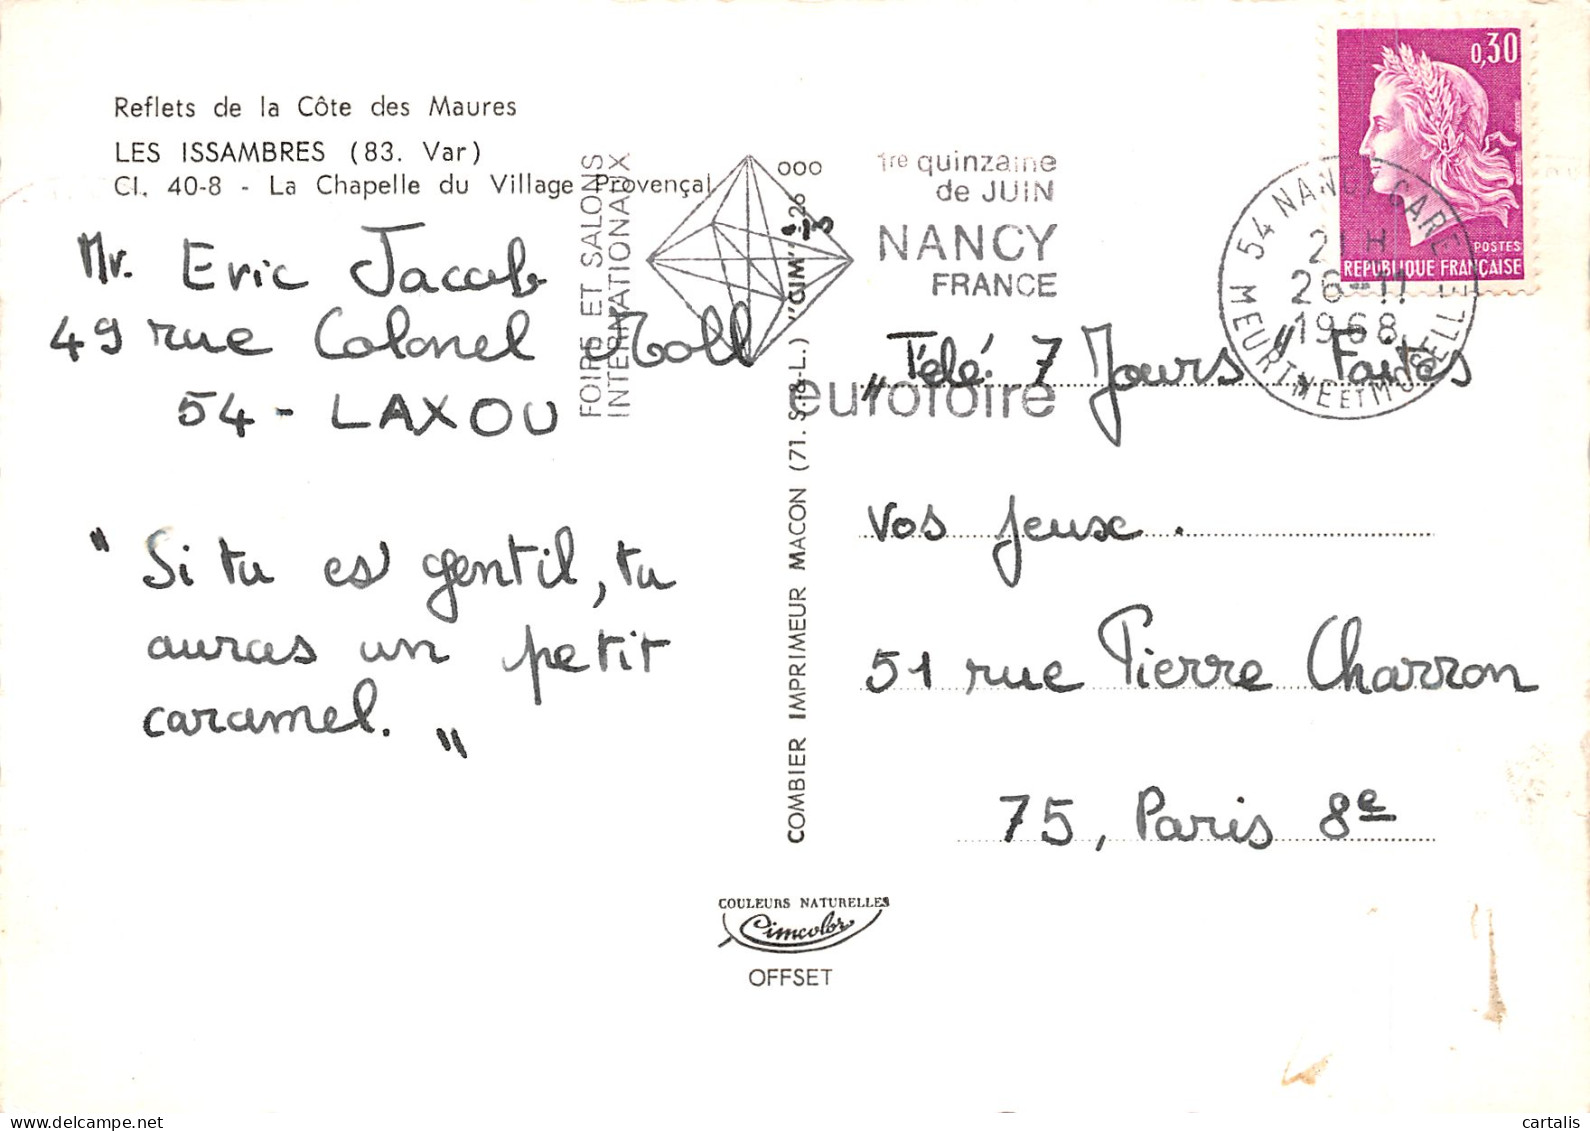 Reflets de la Côte des Maures
LES ISSAMBRES (83. Var)
Cl. 40-8 - La Chapelle du Village Provençal
Mr. Eric Jacob
49 rue Colonel Moll
54 - LAXOU
" Si tu es gentil, tu
auras un petit
caramel. "
FOIRE ET SALONS
INTERNATIONAUX
1re quinzaine
de JUIN
NANCY
FRANCE
eurofoire
COMBIER IMPRIMEUR MACON (71. S.-&-L.) "CIM"
0,30
POSTES
REPUBLIQUE FRANÇAISE
54 NANCY GARE
21 H
26-11
1968
MEURTHE ET MOSELLE
"Télé 7 Jours" Faites
vos jeux.
51 rue Pierre Charron
75, Paris 8e
COULEURS NATURELLES
Cimcolor
OFFSET
cartalis